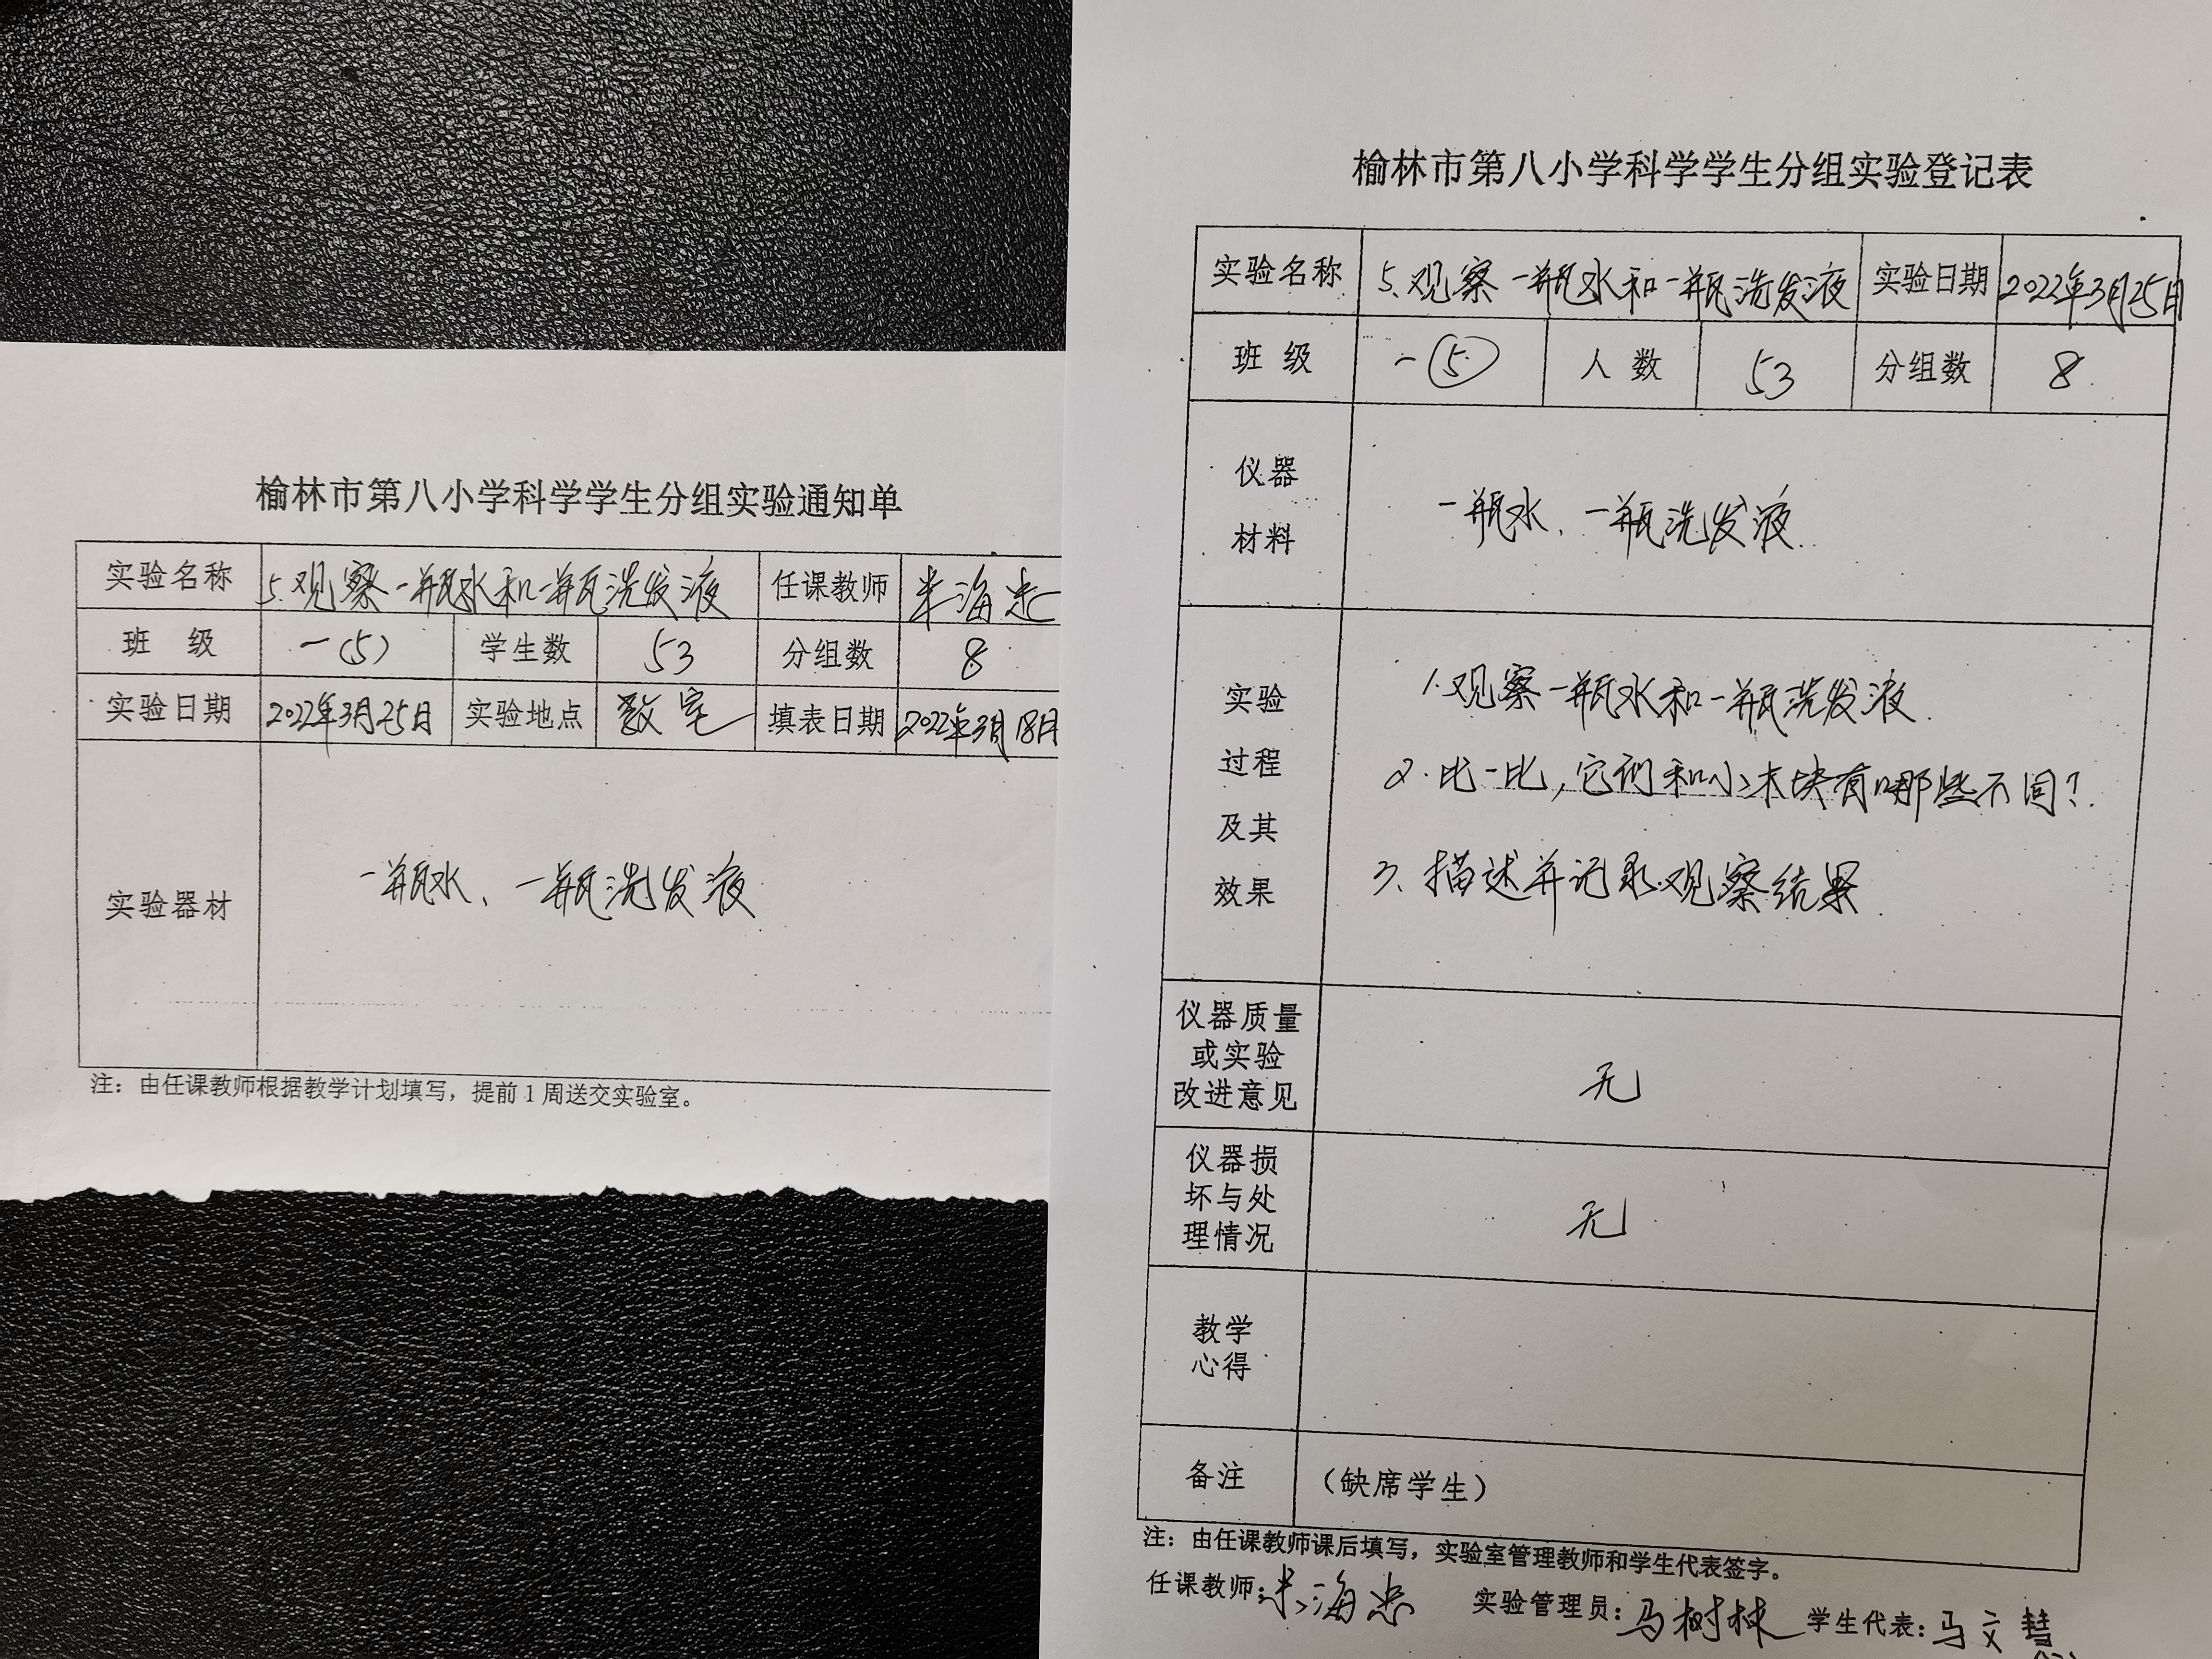 榆林市第八小学科学学生分组实验通知单
实验名称 5.观察一瓶水和一瓶洗发液 任课教师 米海忠
班 级 一(5) 学生数 53 分组数 8
实验日期 2022年3月25日 实验地点 教室 填表日期 2022年3月18日
实验器材 一瓶水、一瓶洗发液
注：由任课教师根据教学计划填写，提前1周送交实验室。
榆林市第八小学科学学生分组实验登记表
实验名称 5.观察一瓶水和一瓶洗发液 实验日期 2022年3月25日
班 级 一⑤ 人 数 53 分组数 8
仪器
材料
一瓶水、一瓶洗发液.
实验
过程
及其
效果
1.观察一瓶水和一瓶洗发液.
2.比一比,它们和小木块有哪些不同?
3、描述并记录观察结果.
仪器质量
或实验
改进意见
无
仪器损
坏与处
理情况
无
教学
心得
备注 （缺席学生）
注：由任课教师课后填写，实验室管理教师和学生代表签字。
任课教师：米海忠 实验管理员：马树林 学生代表：马文慧